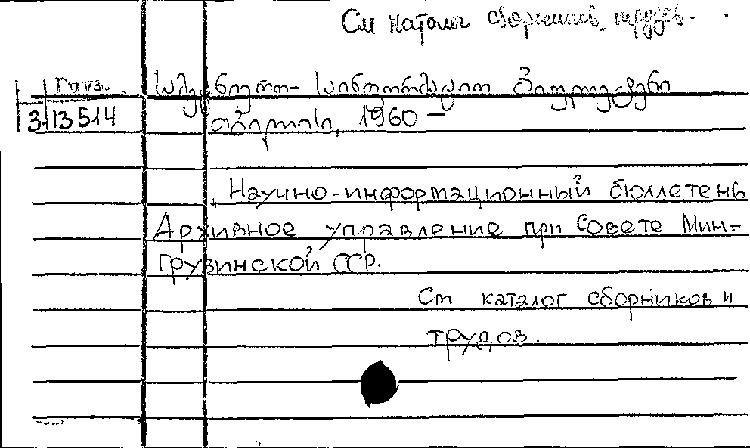 См каталог сборников трудов.
Груз.
სამეცნიერო-საინფორმაციო ბიულეტენი
3 13514
თბილისი, 1960 –
Научно-информационный бюллетень
Архивное управление при Совете Мин-
Грузинской ССР.
См каталог сборников и
трудов.